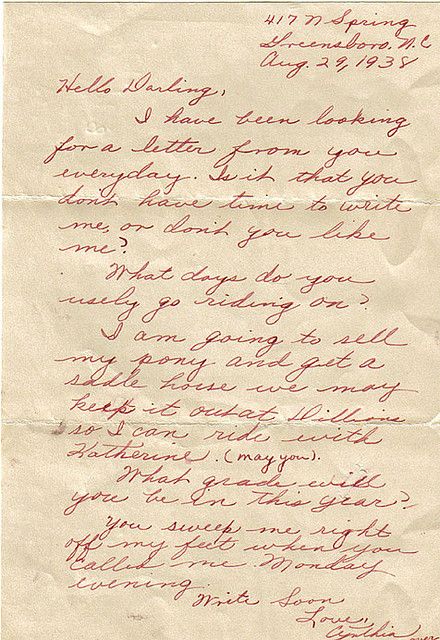 417 N Spring
Greensboro, N.C
Aug. 29, 1938
Hello Darling,
I have been looking
for a letter from you
everyday. Is it that you
dont have time to write
me, or don't you like
me?
What days do you
usely go riding on?
I am going to sell
my pony and get a
sadle horse we may
keep it out at Dillions
so I can ride with
Katherine. (may you).
What grade will
you be in this year?
You sweep me right
off my feet when you
called me Monday
evening.
Write Soon
Love,
Cynthia